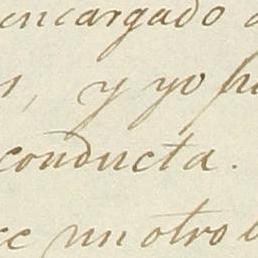 encargado
, y yo
conducta.
un otro